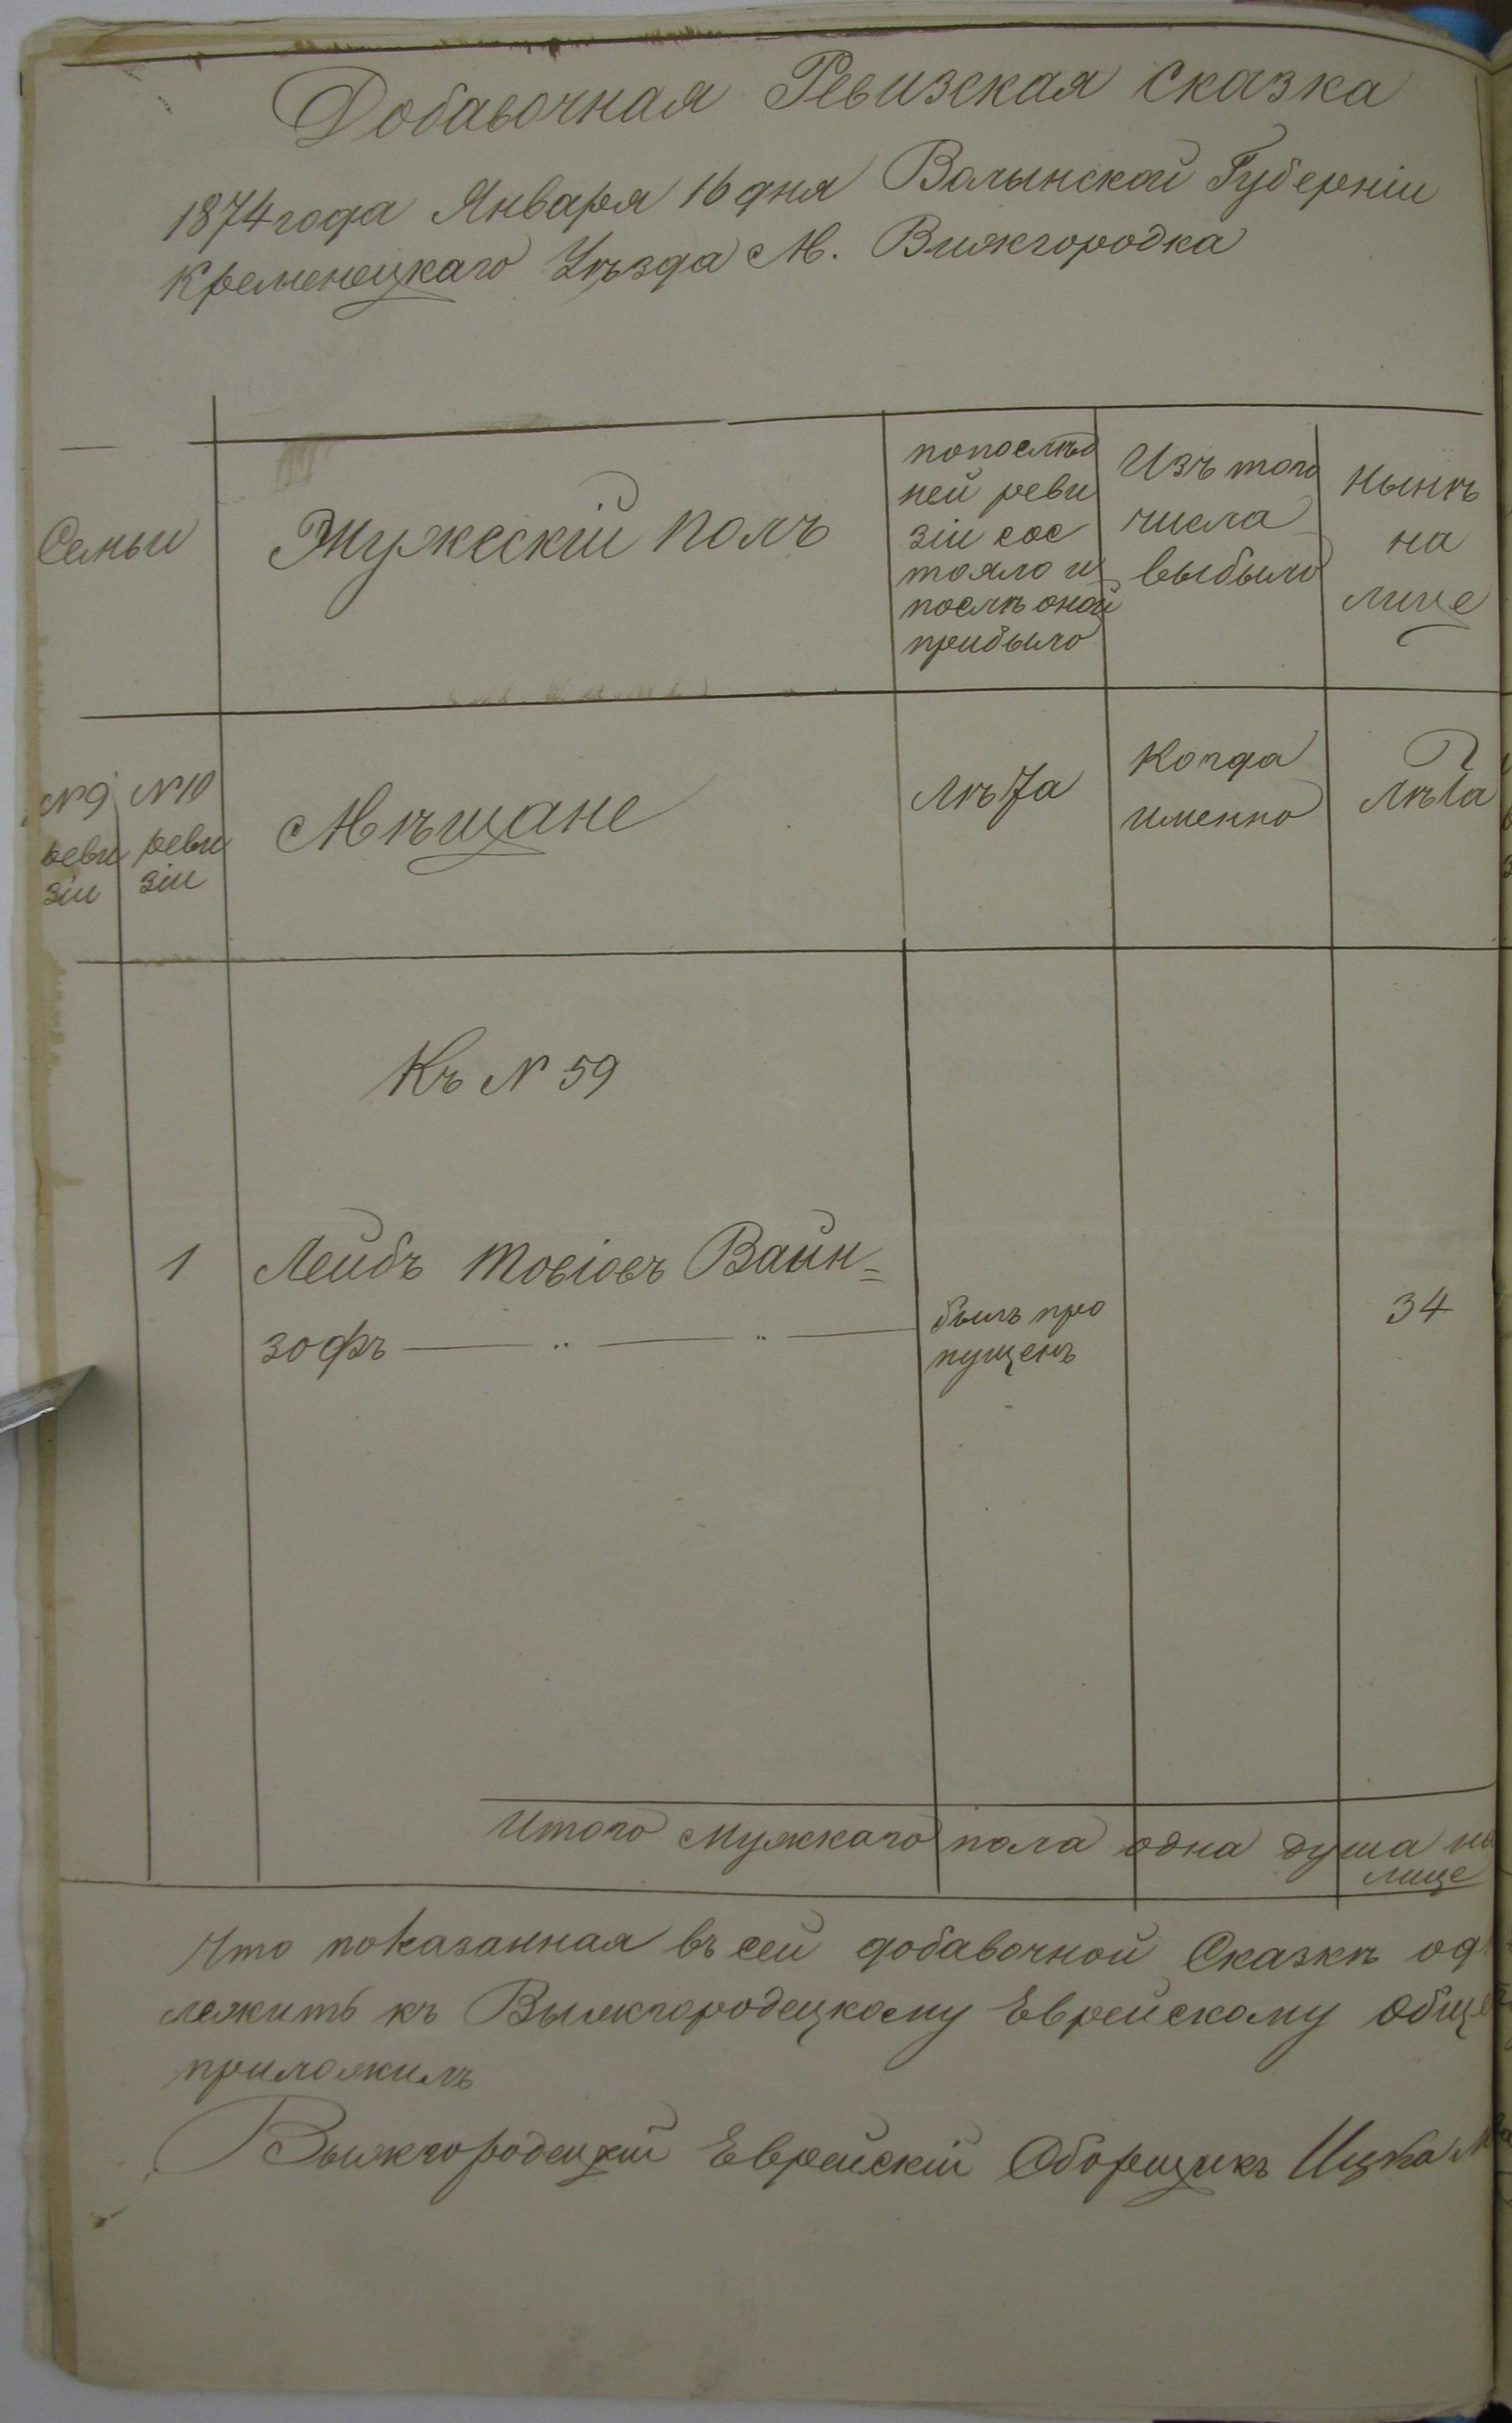 Добавочная Ревизская сказка
1874 года Января 16 дня Волынской Губерніи
Кременецкаго Уѣзда М. Вижгородка
Семьи
Мужескій полъ
попослѣд
ней реви
зіи сос
тояло и
послѣ оной
прибыло
Изъ того
числа
выбыло
Нынѣ
на
лице
№ 9
реви
зіи
№ 10
реви
зіи
Мѣщане
Лѣта
Когда
именно
Лѣта
Къ № 59
1
Лейбъ Товіовъ Вайн=
зофъ
былъ про
пущенъ
34
Итого Мужскаго пола одна душа на
лице
Что показанная въ сей добавочной Сказкѣ од
лежитъ къ Выжгородецкому Еврейскому обще
приложилъ
Выжгородецкій Еврейскій Сборщикъ Ицка